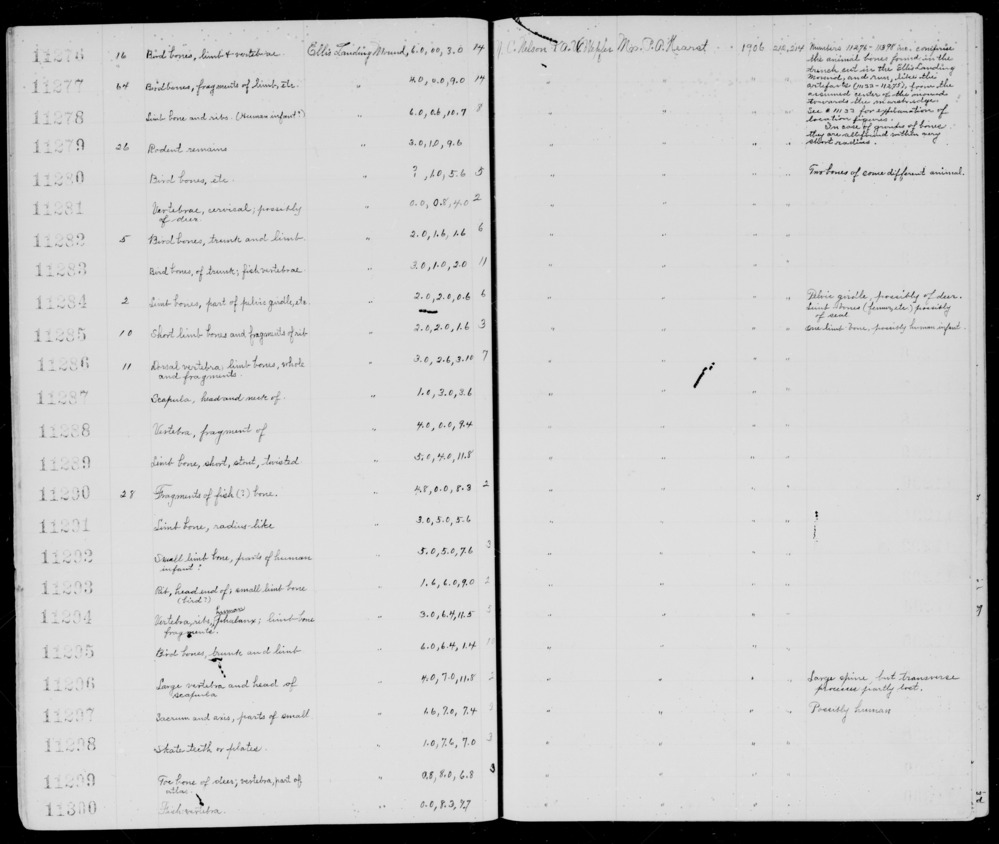 11276 16 Bird bones, limb & vertebrae. Ellis Landing Mound, 6.0, 00, 3.0 14 N. C. Nelson Mrs. P. A. Hearst 1906 212, 214 Numbers 11276-11398 inc. comprise
the animal bones found in the
trench cut in the Ellis Landing
Mound, and run, like the
artefacts (11153-11275), from the
assumed center of the mound
towards the marsh edge.
See # 11153 for explanation of
location figures.
In case of groups of bones
they are all found within very
short radius.
11277 64 Bird bones, fragments of limb, etc. " 4.0, 0.0, 9.0 14 " " " "
11278 Limb bone and ribs. (Human infant?) " 6.0, 0.6, 10.7 3 " " " "
11279 26 Rodent remains " 3.0, 1.0, 9.6 " " " "
11280 Bird bones, etc. " ?, 1.0, 5.6 5 " " " " Two bones of some different animal.
11281 Vertebrae, cervical; possibly
of deer. " 0.0, 0.8, 4.0 2 " " " "
11282 5 Bird bones, trunk and limb. " 2.0, 1.6, 1.6 6 " " " "
11283 Bird bones, of trunk; fish vertebrae. " 3.0, 1.0, 2.0 11 " " " "
11284 2 Limb bones, part of pelvic girdle, etc. " 2.0, 2.0, 0.6 6 " " " " Pelvic girdle, possibly of deer.
Limb bones (femur, etc) possibly
of seal
11285 10 Short limb bones and fragments of rib " 2.0, 2.0, 1.6 3 " " " " One limb bone, possibly human infant.
11286 11 Dorsal vertebra; limb bones, whole
and fragments. " 3.0, 2.6, 3.10 7 " " " "
11287 Scapula, head and neck of. " 1.0, 3.0, 3.6 " " " "
11288 Vertebra, fragment of " 4.0, 0.0, 9.4 " " " "
11289 Limb bone, short, stout, twisted " 5.0, 4.0, 11.8 " " " "
11290 28 Fragments of fish (?) bone. " 4.8, 0.0, 8.3 2 " " " "
11291 Limb bone, radius-like " 3.0, 5.0, 5.6 " " " "
11292 Small limb bone, parts of human
infant? " 5.0, 5.0, 7.6 3 " " " "
11293 Rib, head end of; small limb bone
(bird?) " 1.6, 6.0, 9.0 2 " " " "
11294 Vertebra, ribs, human phalanx; limb bone
fragments. " 3.0, 6.4, 11.5 5 " " " "
11295 Bird bones, trunk and limb " 6.0, 6.4, 1.4 " " " "
11296 Large vertebra and head of
scapula " 4.0, 7.0, 11.8 2 " " " " Large spine, but transverse
process partly lost.
11297 Sacrum and axis, parts of small " 1.6, 7.0, 7.4 " " " " Possibly human
11298 Skate teeth or plates. " 1.0, 7.6, 7.0 3 " " " "
11299 Toe bone of deer; vertebra, part of
atlas. " 0.8, 8.0, 6.8 3 " " " "
11300 Fish vertebra. " 0.0, 8.3, 7.7 " " " "